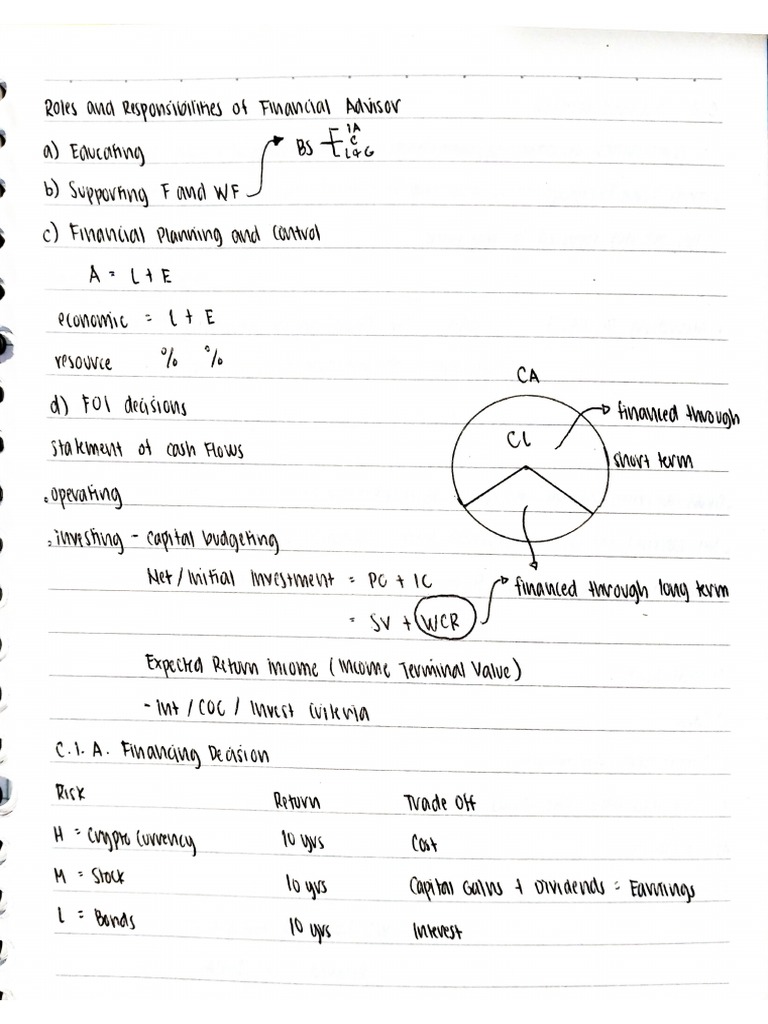 Roles and Responsibilities of Financial Advisor
a) Educating
BS
IA
C
L+G
b) Supporting F and WF
c) Financial Planning and Control
A = L + E
economic = L + E
resource % %
d) FOI decisions
CA
CL
financed through
short term
Statement of Cash Flows
. operating
. investing - capital budgeting
Net / Initial Investment = PC + IC
financed through long term
= SV + WCR
Expected Return income (Income Terminal Value)
- Int / COC / Invest Criteria
C.I.A. Financing Decision
Risk Return Trade Off
H = Crypto Currency 10 yrs Cost
M = Stock 10 yrs Capital Gains + Dividends = Earnings
L = Bonds 10 yrs Interest